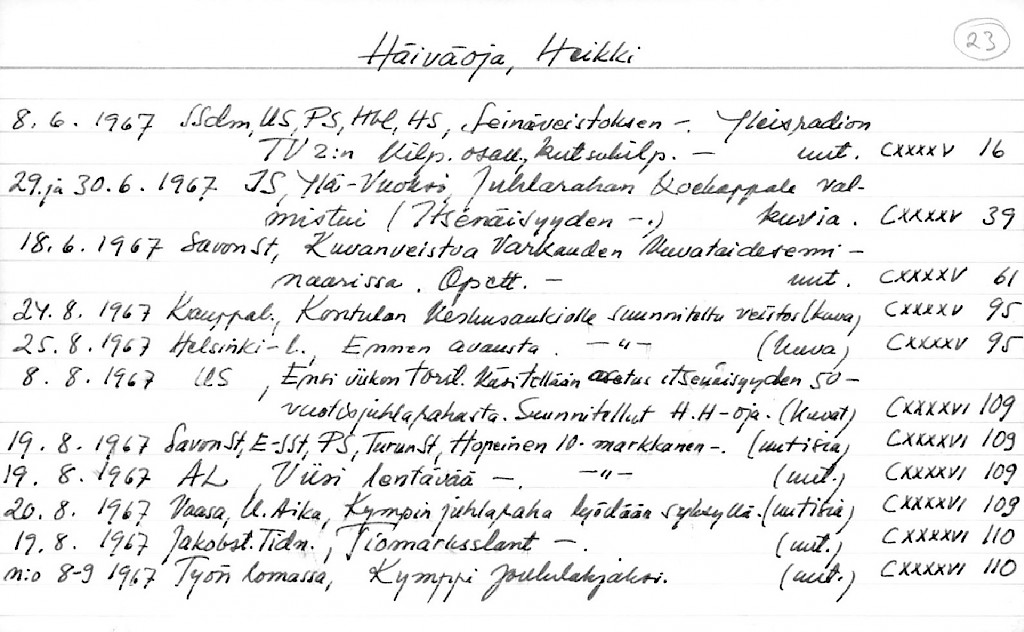 23
Häiväoja, Heikki
8.6.1967 SSdm, US, PS, Hbl, HS, Seinäveistoksen -. Yleisradion
TV 2:n kilp. osall., kutsukilp. - uut. CXXXXV 16
29. ja 30.6.1967 IS, Ylä-Vuoksi, Juhlarahan koekappale val-
mistui (Itsenäisyyden -.) kuvia. CXXXXV 39
18.6.1967 SavonSt, Kuvanveistoa Varkauden kuvataidesemi-
naarissa. Opett. - uut. CXXXXV 61
24.8.1967 Kauppal., Kontulan keskusaukiolle suunniteltu veistos (kuva) CXXXXV 95
25.8.1967 Helsinki-l., Ennen avausta. -"- (kuva) CXXXXV 95
8.8.1967 US, Ensi viikon torst. käsitellään asetus itsenäisyyden 50-
vuotisjuhlarahasta. Suunnitellut H.H-oja. (kuvat) CXXXXVI 109
19.8.1967 SavonSt, E-SSt, PS, TurunSt, Hopeinen 10-markkanen -. (uutisia) CXXXXVI 109
19.8.1967 AL, Viisi lentävää -. -"- (uut.) CXXXXVI 109
20.8.1967 Vaasa, U. Aika, Kympin juhlaraha lyödään syksyllä. (uutisia) CXXXXVI 109
19.8.1967 Jakobst. Tidn., Tiomarksslant -. (uut.) CXXXXVI 110
n:o 8-9 1967 Työn lomassa, Kymppi joululahjaksi. (uut.) CXXXXVI 110